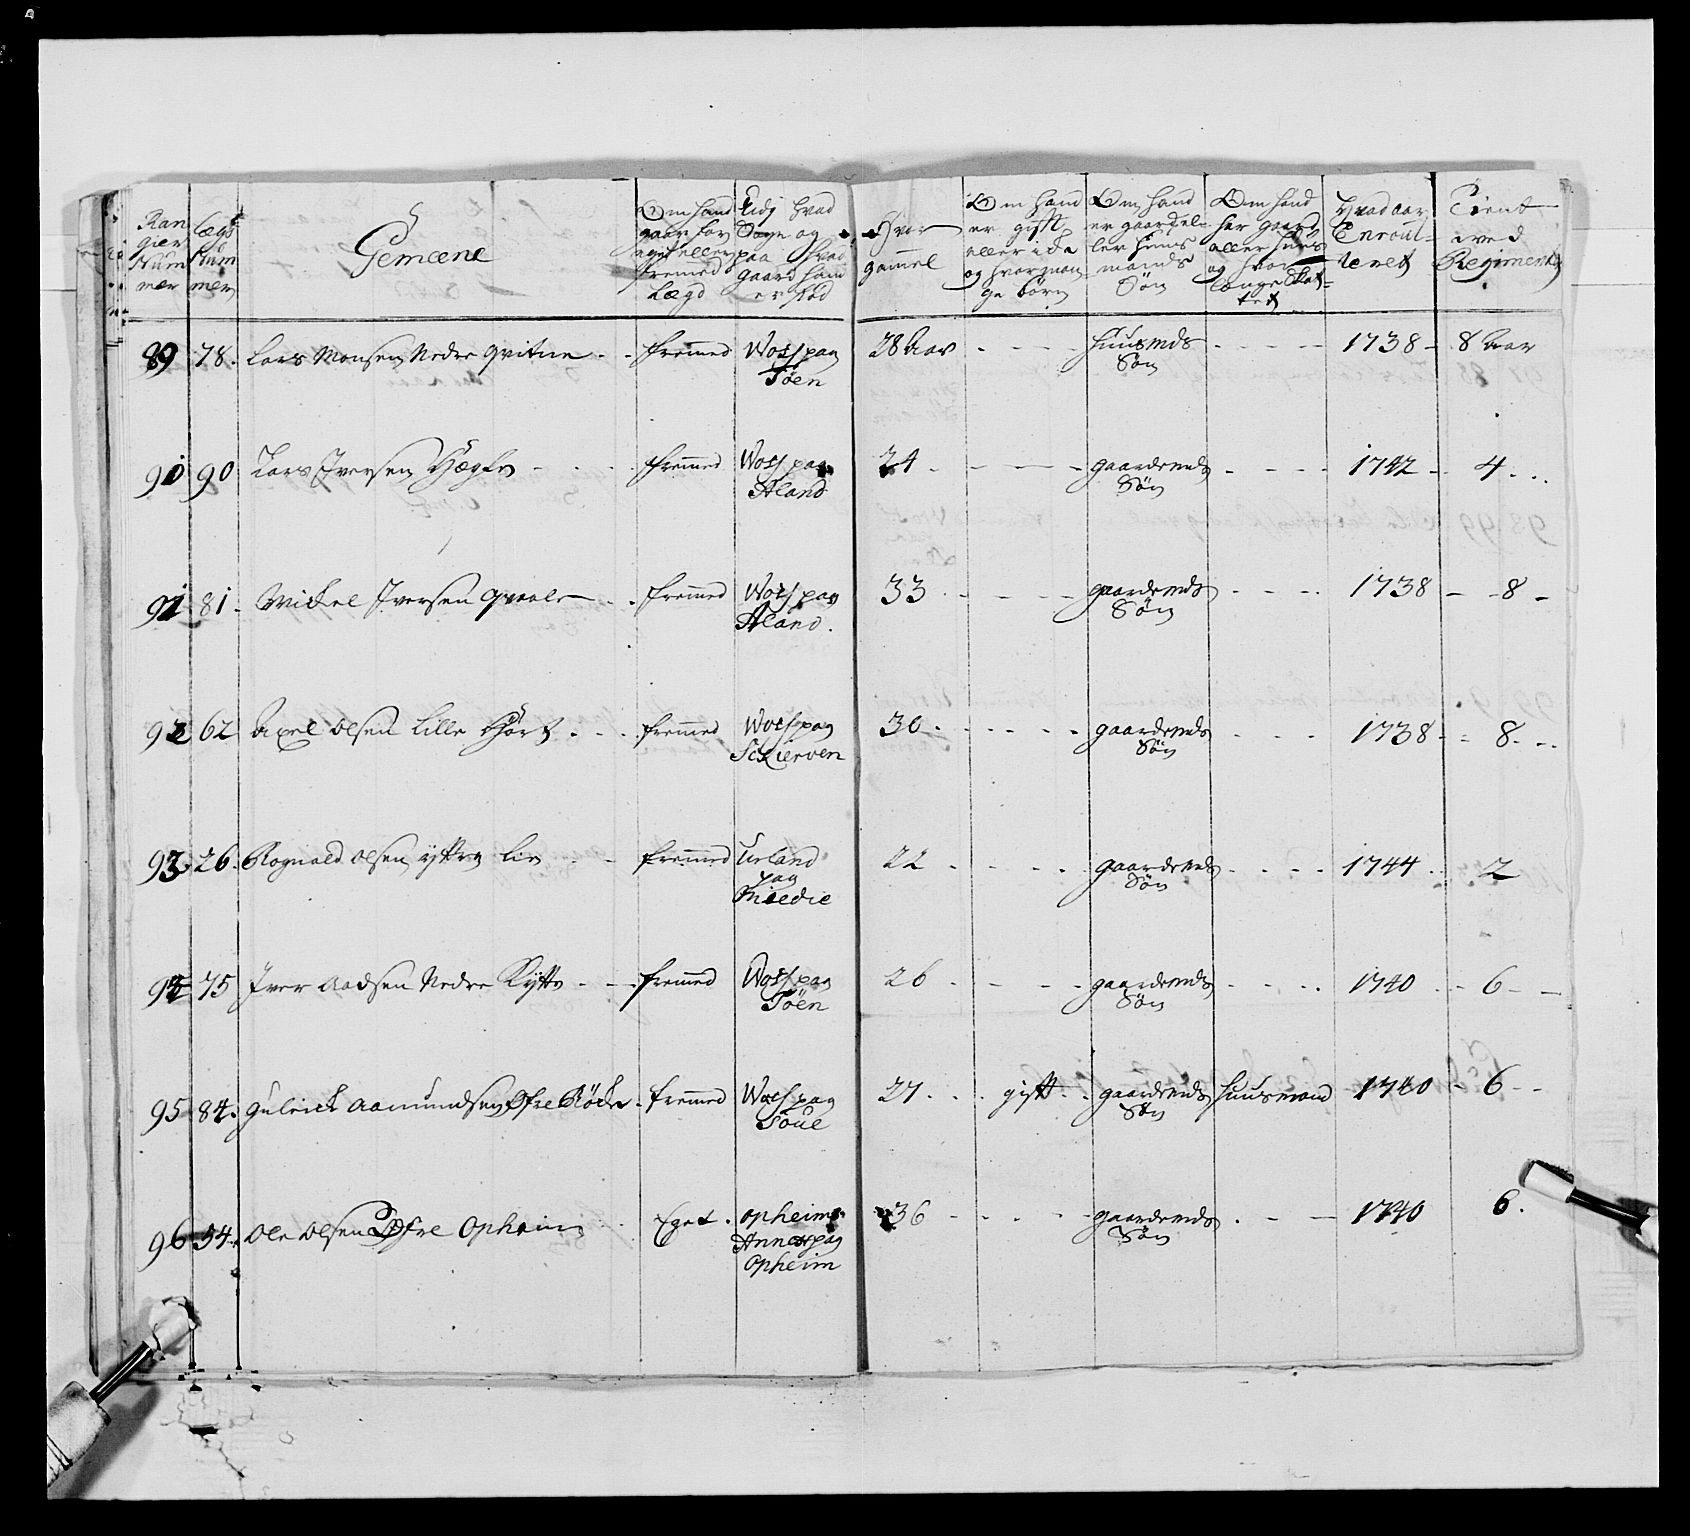 Ran gier Num mer | Lægs Num mer | Gemeene | Om hand gaar for eget eller fremed Lægd | Udj hvad Sogn og paa hvad gaard hand er fød | Hvor gammel | Om hand er gift eller ida og hvor man ge børn | Om hand er gaardel ler huus mands Søn | Om hand har gaard eller huus og hvor lenge | Hvad aar Enroul leret | Tient ved Regimentet
89 78. Lars Monsen Nedre Qvitne - - fremed Woss paa Töen 28 Aar - - - - huusmds Søn - - - - - 1738 - 8 Aar
90 90 Lars Iversen - - - - fremed Woss paa Aland 24 - - - - - gaardmds Søn - - - - 1742 - 4 - - -
91 81 - Mickel Iversen Qvaale - - fremed Woss paa Aland. 33 - - - - - gaardmds Søn - - - - 1738 - - 8 -
92 62 Axel Olsen Lille - - - fremed Woss paa Schierven 30 - - - - - gaardmds Søn - - - 1738 - - 8 - - -
93. 26. Rognald Olsen yttre Lie - - fremed Urland paa 22 - - - - - gaardmds Søn - - - - 1744 - - 2
94 75 Iver Aadsen Nedre Kytte - - - fremed Woss paa Töen 26 - - - - gaardmds Søn - - - - 1740 - - 6 - -
95 84. Gulrick Aamundsen Øfre - fremed Woss paa 27. - - gift - - gaardmds Søn huusmand 1740 - 6 - -
96 54. Ole Olsen Øfre Opheim - - Eget. opheims Annex paa Opheim 36 - - - - - gaardmds Søn - - - 1740 6.